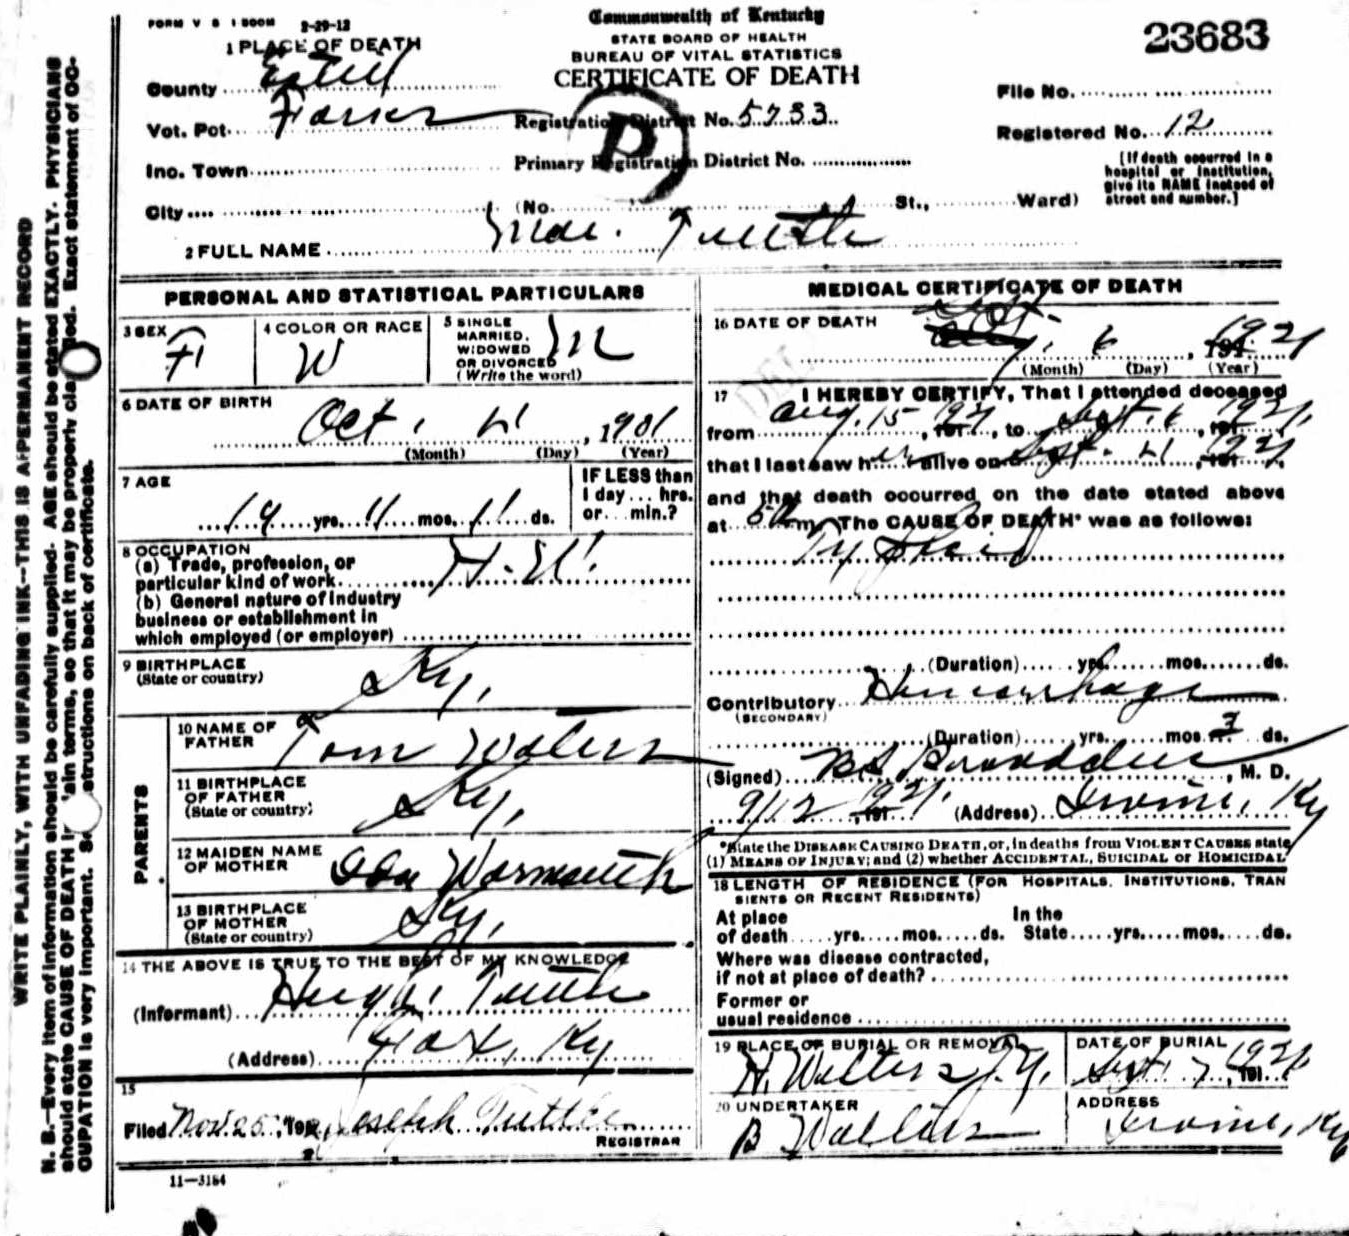 FORM V S 1 500M 2-29-12
Commonwealth of Kentucky
STATE BOARD OF HEALTH
BUREAU OF VITAL STATISTICS
CERTIFICATE OF DEATH
23683
1 PLACE OF DEATH
County Estill
Vot. Pot.
Registration District No. 5733
File No.
Registered No. 12
Inc. Town
Primary Registration District No.
P
[If death occurred in a hospital or institution, give its NAME instead of street and number.]
City (No. St., Ward)
2 FULL NAME Mae. Tuttle
PERSONAL AND STATISTICAL PARTICULARS
3 SEX F
4 COLOR OR RACE W
5 SINGLE MARRIED, WIDOWED OR DIVORCED (Write the word) M
6 DATE OF BIRTH
Oct. , 1901
(Month) (Day) (Year)
7 AGE
19 yrs. 11 mos. 11 ds.
IF LESS than 1 day... hrs. or... min.?
8 OCCUPATION
(a) Trade, profession, or
particular kind of work H.W.
(b) General nature of industry
business or establishment in
which employed (or employer)
9 BIRTHPLACE
(State or country) Ky.
PARENTS
10 NAME OF FATHER Tom
11 BIRTHPLACE OF FATHER (State or country) Ky.
12 MAIDEN NAME OF MOTHER Warmouth
13 BIRTHPLACE OF MOTHER (State or country) Ky.
14 THE ABOVE IS TRUE TO THE BEST OF MY KNOWLEDGE
(Informant) Hugh Tuttle
(Address) Fox, Ky
15
Filed Nov. 25, 192 Joseph Tuttle
REGISTRAR
11—3184
MEDICAL CERTIFICATE OF DEATH
16 DATE OF DEATH
Sept. 6, 1921
(Month) (Day) (Year)
17 I HEREBY CERTIFY, That I attended deceased
from Aug. 15, 1921, to Sept. 6, 1921,
that I last saw her alive on Sept. , 1921,
and that death occurred on the date stated above
at 5 a m. The CAUSE OF DEATH* was as follows:
Typhoid
(Duration) yrs. mos. ds.
Contributory Hemorrhage
(SECONDARY)
(Duration) yrs. mos. 3 ds.
(Signed) Broaddus, M. D.
9/12 1921 (Address) Irvine, Ky
*State the DISEASE CAUSING DEATH, or, in deaths from VIOLENT CAUSES state
(1) MEANS OF INJURY; and (2) whether ACCIDENTAL, SUICIDAL or HOMICIDAL
18 LENGTH OF RESIDENCE (FOR HOSPITALS, INSTITUTIONS, TRAN
SIENTS OR RECENT RESIDENTS)
At place of death yrs. mos. ds. In the State yrs. mos. ds.
Where was disease contracted,
if not at place of death?
Former or
usual residence
19 PLACE OF BURIAL OR REMOVAL
DATE OF BURIAL
Sept. 7, 1921
20 UNDERTAKER
B
ADDRESS
Irvine, Ky
WRITE PLAINLY, WITH UNFADING INK—THIS IS A PERMANENT RECORD
N. B.—Every item of information should be carefully supplied. AGE should be stated EXACTLY. PHYSICIANS
should state CAUSE OF DEATH in plain terms, so that it may be properly classified. Exact statement of OC-
CUPATION is very important. See instructions on back of certificate.